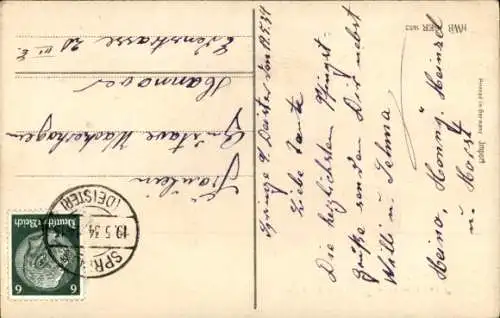 Springe a/Deister den 19.5.34
Liebe Tante
Die herzlichsten Pfingst-
Grüße senden Dir nebst
Willi u. Selma
Heino, Henny, Heinzel
u. Horst
Fräulein
Gustave
Hannover
20 III E.
HWB SER
Printed in Germany
Import
SPR
(DEISTER)
19.5.34
Deutsches Reich
6 6